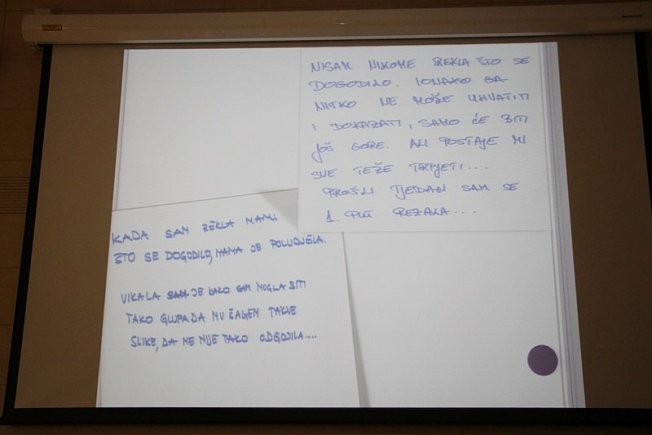 NISAM NIKOME REKLA ŠTO SE
DOGODILO. IONAKO GA
NITKO NE MOŽE UHVATITI
I DOKAZATI, SAMO ĆE BITI
JOŠ GORE. ALI POSTAJE MI
SVE TEŽE TRPJETI....
PROŠLI TJEDAN SAM SE
1. PUT REZALA....
KADA SAM REKLA MAMI
ŠTO SE DOGODILO, MAMA JE POLUDJELA.
VIKALA JE KAKO SAM MOGLA BITI
TAKO GLUPA DA MU ŠALJEM TAKVE
SLIKE, DA ME NIJE TAKO ODGOJILA....